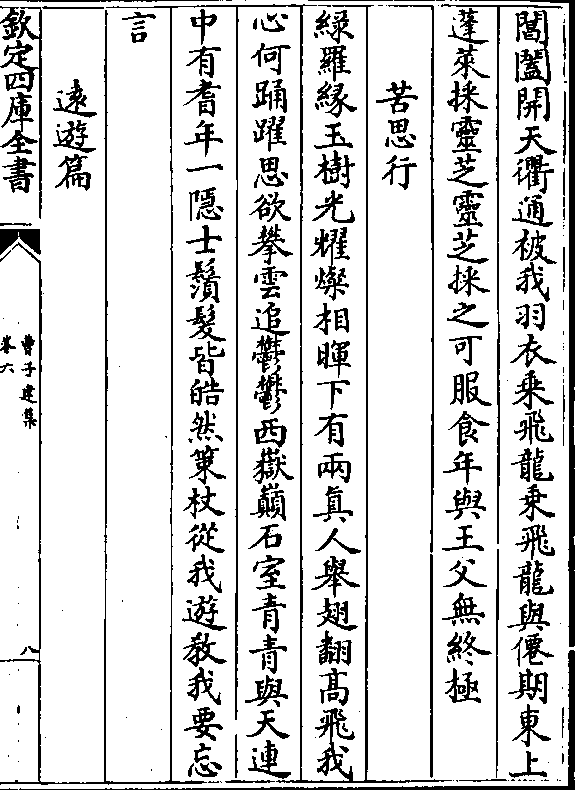 閶闔開天衢通被我羽衣乗飛龍乗飛龍與僊期東上
蓬萊採靈芝靈芝採之可服食年與王父無終極
苦思行
緑羅緣玉樹光耀燦相暉下有兩真人舉翅翻髙飛我
心何踊躍思欲攀雲追鬱鬱西嶽巔石室青青與天連
中有耆年一隱士鬚髮皆皓然策杖從我遊教我要忘
言
逺遊篇
欽定四庫全書
曹子建集
卷六
八